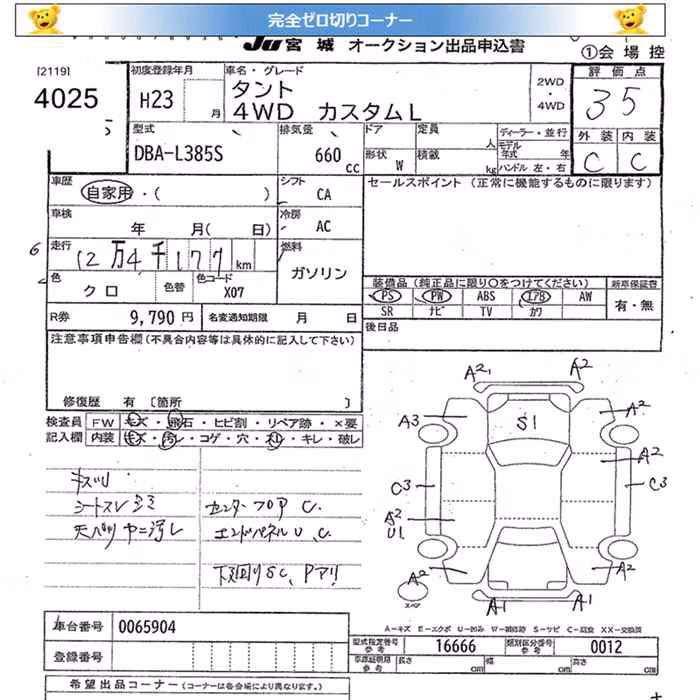 完全ゼロ切りコーナー
JU 宮城 オークション出品申込書
①会場控
[2119]
4025
初度登録年月 H23 月
車名・グレード
タント
4WD カスタムL
2WD・4WD
評価点
35
外装 内装
C C
型式
DBA-L385S
排気量
660 cc
ドア
定員 人
ディーラー・並行
形状 W
積載 kg
モデル年式 年
ハンドル 左・右
車歴
自家用・( )
シフト
CA
セールスポイント (正常に機能するものに限ります)
車検
年 月( 日)
冷房
AC
走行
12万4千177 km
燃料
ガソリン
色
クロ
色替
色コード
X07
装備品 (純正品に限り○をつけてください)
新車保証書
PS PW ABS エアB AW
SR ナビ TV カワ
有・無
R券 9,790 円
名変通知期限 月 日
後日品
注意事項申告欄 (不具合内容等は具体的に記入して下さい)
修復歴 有 [箇所 ]
検査員 FW キズ・飛石・ヒビ割・リペア跡・×要
記入欄 内装 キズ・汚レ・コゲ・穴・スレ・キレ・破レ
キズU
シートスレ
センターフロア C.
エンドパネル U、C.
下回りSC、Pアリ
A2 A2
A3 S1 A2
A2
C3 C3
A2
U1
A2 A2
スペア
A1 A1
A-キズ E-エクボ U-凹み W-補修跡 S-サビ C-腐食 XX-交換済
車台番号 0065904
登録番号
型式指定番号 参考 16666
類別区分番号 参考 0012
長さ cm 幅 cm 高さ cm
希望出品コーナー (コーナーは各会場により異なります。)